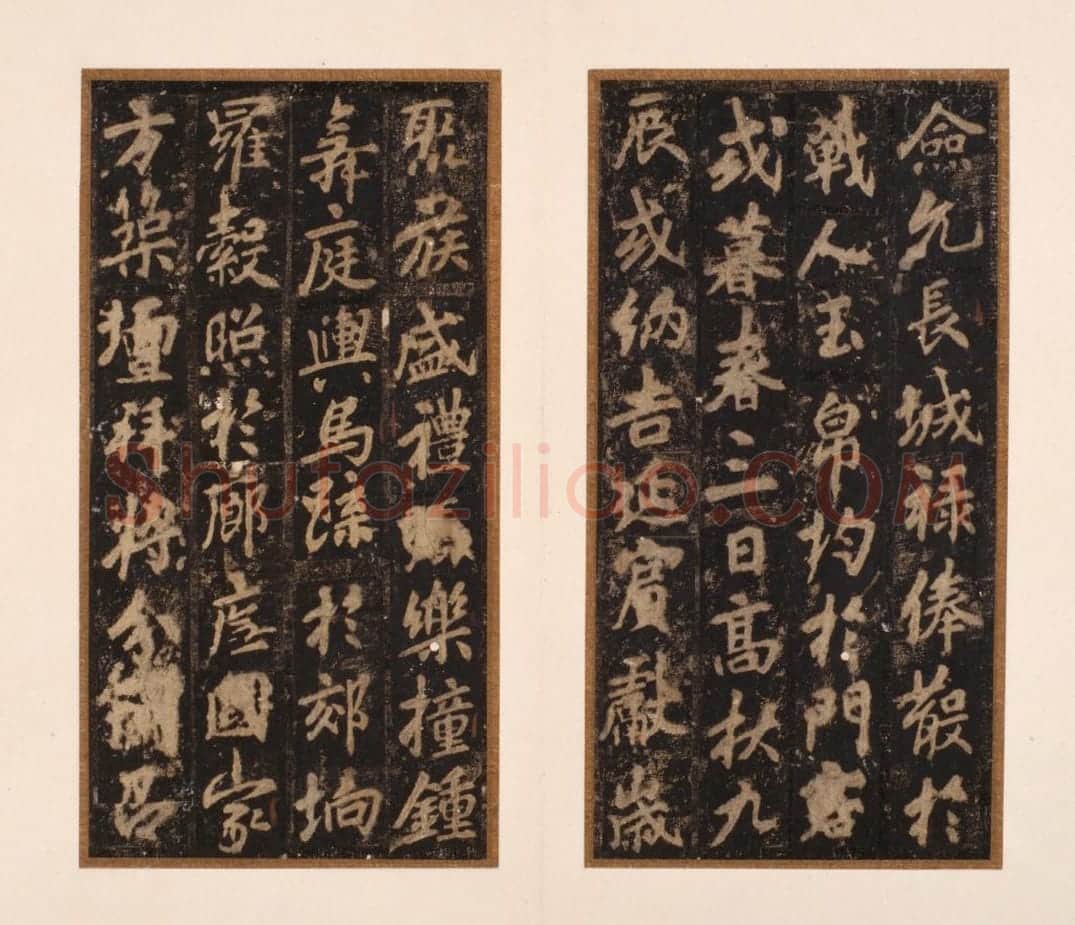 僉允長城祿俸散於
戰人玉帛均於門客
或暮春三日高秋九
辰或納吉迨賓獻歲
聚族盛禮樂撞鍾
舞庭輿馬於郊坰
羅縠照於廊廡國家
方築壇拜將
Shufaziliao.COM